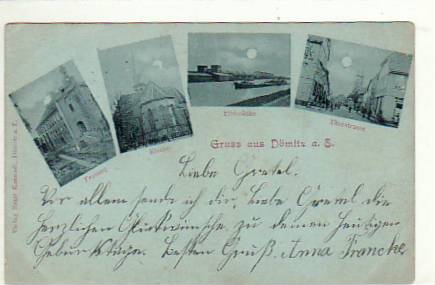 Festung
Kirche
Elbbrücke
Elbestrasse
Gruss aus Dömitz a. E.
Liebe Gretel.
Vor allem sende ich dir, liebe Gretel die
herzlichen Glückwünsche zu deinem heutigen
Geburtstage. Besten Gruß. Anna Francke
Verlag
Dömitz a. E.